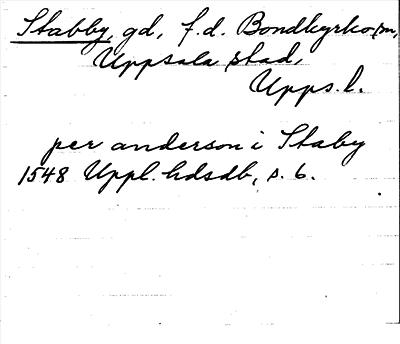 Stabby, gd, f.d. Bondkyrko sn,
Uppsala stad,
Upps. l.
per anderson i Staby
1548 Uppl. hdsdb, s. 6.